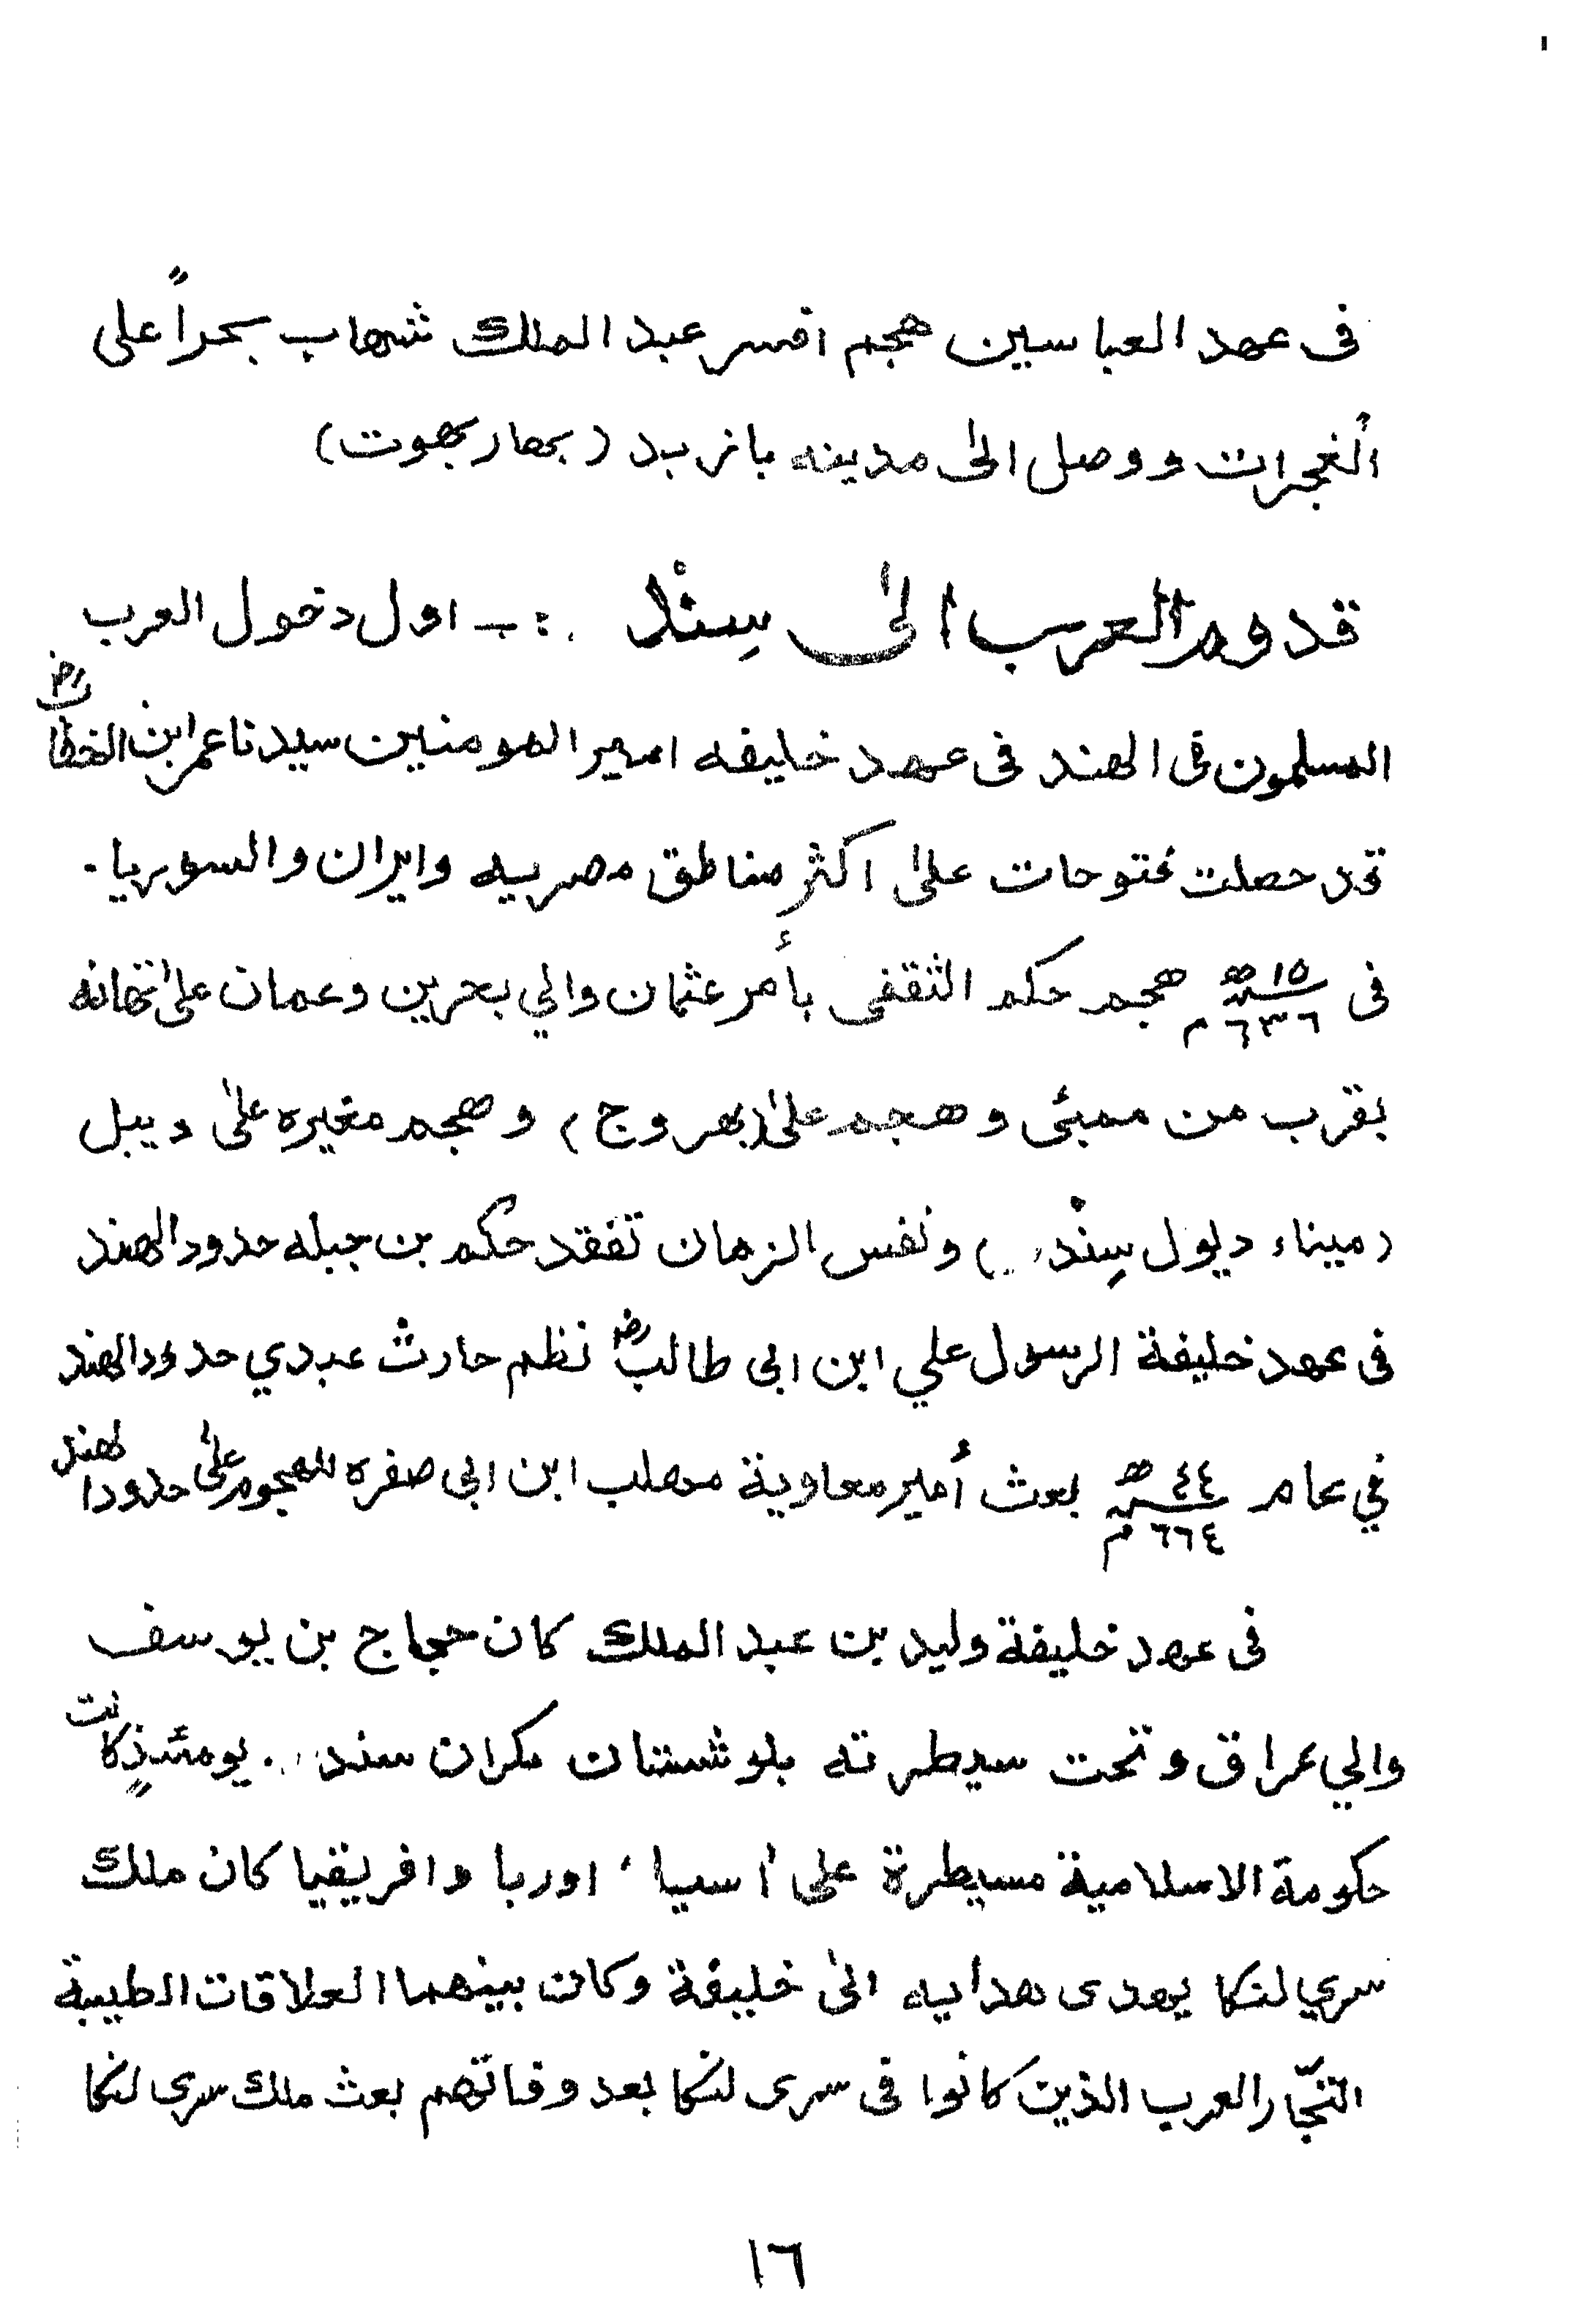 فى عهد العباسين هجم افسر عبد الملك شهاب بحراً على
الغجرات ووصل الىٰ مدينه باربد (بھاربھوت)
قدوم العرب الىٰ سِنْد :- اول دخول العرب
المسلمون فى الهند فى عهد خليفه امير المومنين سيدنا عمر ابن الخطاب رض
قد حصلت فتوحات علىٰ اكثر مناطق مصريه وايران والسوريا۔
فى ١٥ھ ٦٣٦م هجم حكم الثقفى بأمر عثمان والي بحرين وعمان علىٰ تھانه
بقرب من ممبئى وهجم علىٰ (بھروج) وهجم مغيره علىٰ ديبل
(ميناء ديول سِنْد) ونفس الزمان تفقد حكم بن جبله حدود الهند
فى عهد خليفة الرسول علي ابن ابى طالب رض نظم حارث عبدي حدود الهند
في عام ٤٤ھ ٦٦٤م بعث أمير معاوية مهلب ابن ابى صفره للهجوم علىٰ حدود الهند
فى عهد خليفة وليد بن عبد الملك كان حجاج بن يوسف
والي عراق وتحت سيطرته بلوشستان مكران سند. يومئذٍ كانت
حكومة الاسلامية مسيطرة على اسيا، اوربا وافريقيا كان ملك
سري لنكا يهدى هدايه الىٰ خليفة وكان بينهما العلاقات الطيبة
التجّار العرب الذين كانوا فى سرى لنكا بعد وفاتهم بعث ملك سرى لنكا
١٦